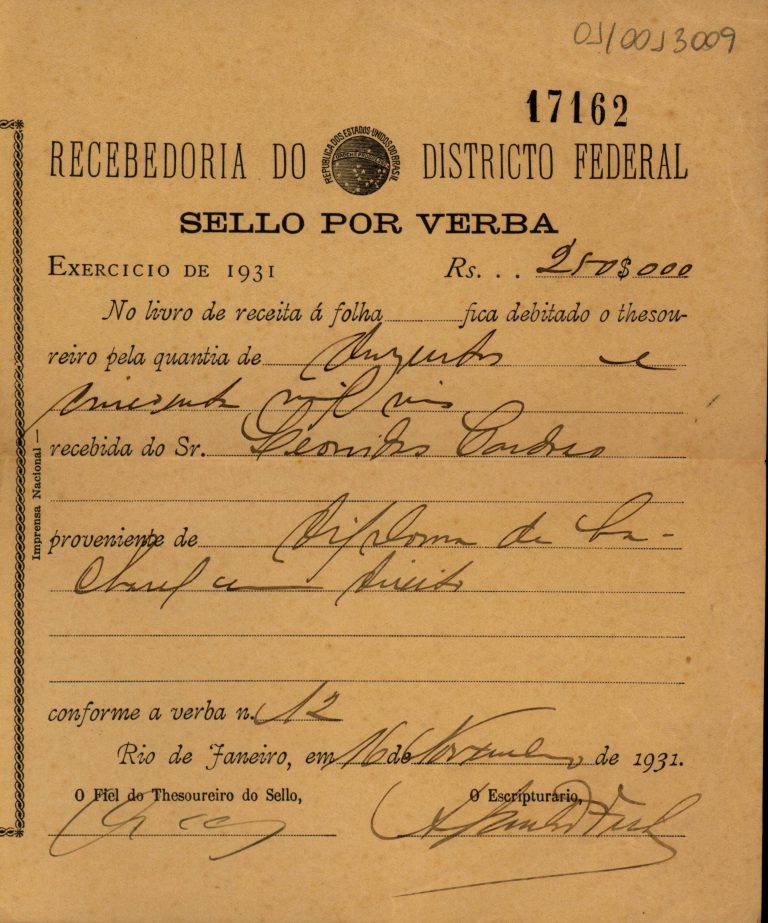 01/0013009
17162
RECEBEDORIA DO DISTRICTO FEDERAL
REPUBLICA DOS ESTADOS UNIDOS DO BRASIL
SELLO POR VERBA
EXERCICIO DE 1931 Rs. . . 250$000
No livro de receita á folha fica debitado o thesou-
reiro pela quantia de duzentos e
cincoenta mil reis
recebida do Sr. Leonidas Cardoso
proveniente de Diploma de ba-
charel em direito
conforme a verba n. 12
Rio de Janeiro, em 16 de Novembro de 1931.
O Fiel do Thesoureiro do Sello, O Escripturário,
Imprensa Nacional —